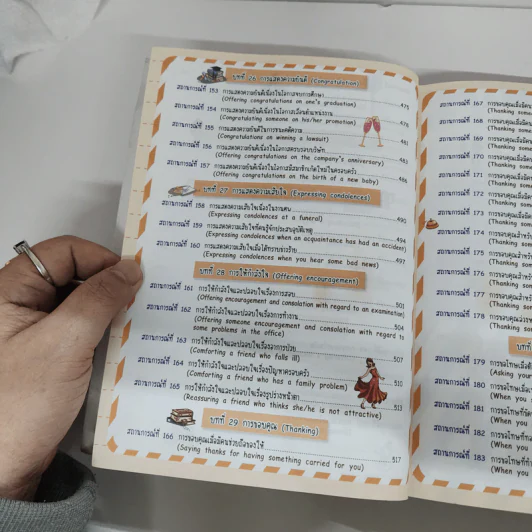 บทที่ 26 การแสดงความยินดี (Congratulation)
สถานการณ์ที่ 153 การแสดงความยินดีเนื่องในโอกาสจบการศึกษา
(Offering congratulations on one's graduation) 475
สถานการณ์ที่ 154 การแสดงความยินดีเนื่องในโอกาสเลื่อนตำแหน่งงาน
(Congratulating someone on his/her promotion) 478
สถานการณ์ที่ 155 การแสดงความยินดีในการชนะคดีความ
(Congratulations on winning a lawsuit) 481
สถานการณ์ที่ 156 การแสดงความยินดีเนื่องในโอกาสครบรอบบริษัท
(Offering congratulations on the company's anniversary) 483
สถานการณ์ที่ 157 การแสดงความยินดีเนื่องในโอกาสมีสมาชิกเกิดใหม่ในครอบครัว
(Offering congratulations on the birth of a new baby) 486
บทที่ 27 การแสดงความเสียใจ (Expressing condolences)
สถานการณ์ที่ 158 การแสดงความเสียใจเนื่องในงานศพ
(Expressing condolences at a funeral) 490
สถานการณ์ที่ 159 การแสดงความเสียใจที่คนรู้จักประสบอุบัติเหตุ
(Expressing condolences when an acquaintance has had an accident) 494
สถานการณ์ที่ 160 การแสดงความเสียใจเมื่อได้ทราบข่าวร้าย
(Expressing condolences when you hear some bad news) 497
บทที่ 28 การให้กำลังใจ (Offering encouragement)
สถานการณ์ที่ 161 การให้กำลังใจและปลอบใจเรื่องการสอบ
(Offering encouragement and consolation with regard to an examination) 501
สถานการณ์ที่ 162 การให้กำลังใจและปลอบใจเรื่องการทำงาน
(Offering someone encouragement and consolation with regard to
some problems in the office) 504
สถานการณ์ที่ 163 การให้กำลังใจและปลอบใจเรื่องอาการป่วย
(Comforting a friend who falls ill) 507
สถานการณ์ที่ 164 การให้กำลังใจและปลอบใจเรื่องปัญหาครอบครัว
(Comforting a friend who has a family problem) 510
สถานการณ์ที่ 165 การให้กำลังใจและปลอบใจเรื่องรูปร่างหน้าตา
(Reassuring a friend who thinks she/he is not attractive) 513
บทที่ 29 การขอบคุณ (Thanking)
สถานการณ์ที่ 166 การขอบคุณเมื่อมีคนช่วยถือของให้
(Saying thanks for having something carried for you) 517
สถานการณ์ที่ 167
สถานการณ์ที่ 168
สถานการณ์ที่ 169
สถานการณ์ที่ 170
สถานการณ์ที่ 171
สถานการณ์ที่ 172
สถานการณ์ที่ 173
สถานการณ์ที่ 174
สถานการณ์ที่ 175
สถานการณ์ที่ 176
สถานการณ์ที่ 177
สถานการณ์ที่ 178
บทที่
สถานการณ์ที่ 179
(Asking your
สถานการณ์ที่ 180
(When you
สถานการณ์ที่ 181
(When you
สถานการณ์ที่ 182
(When you
สถานการณ์ที่ 183
(When you